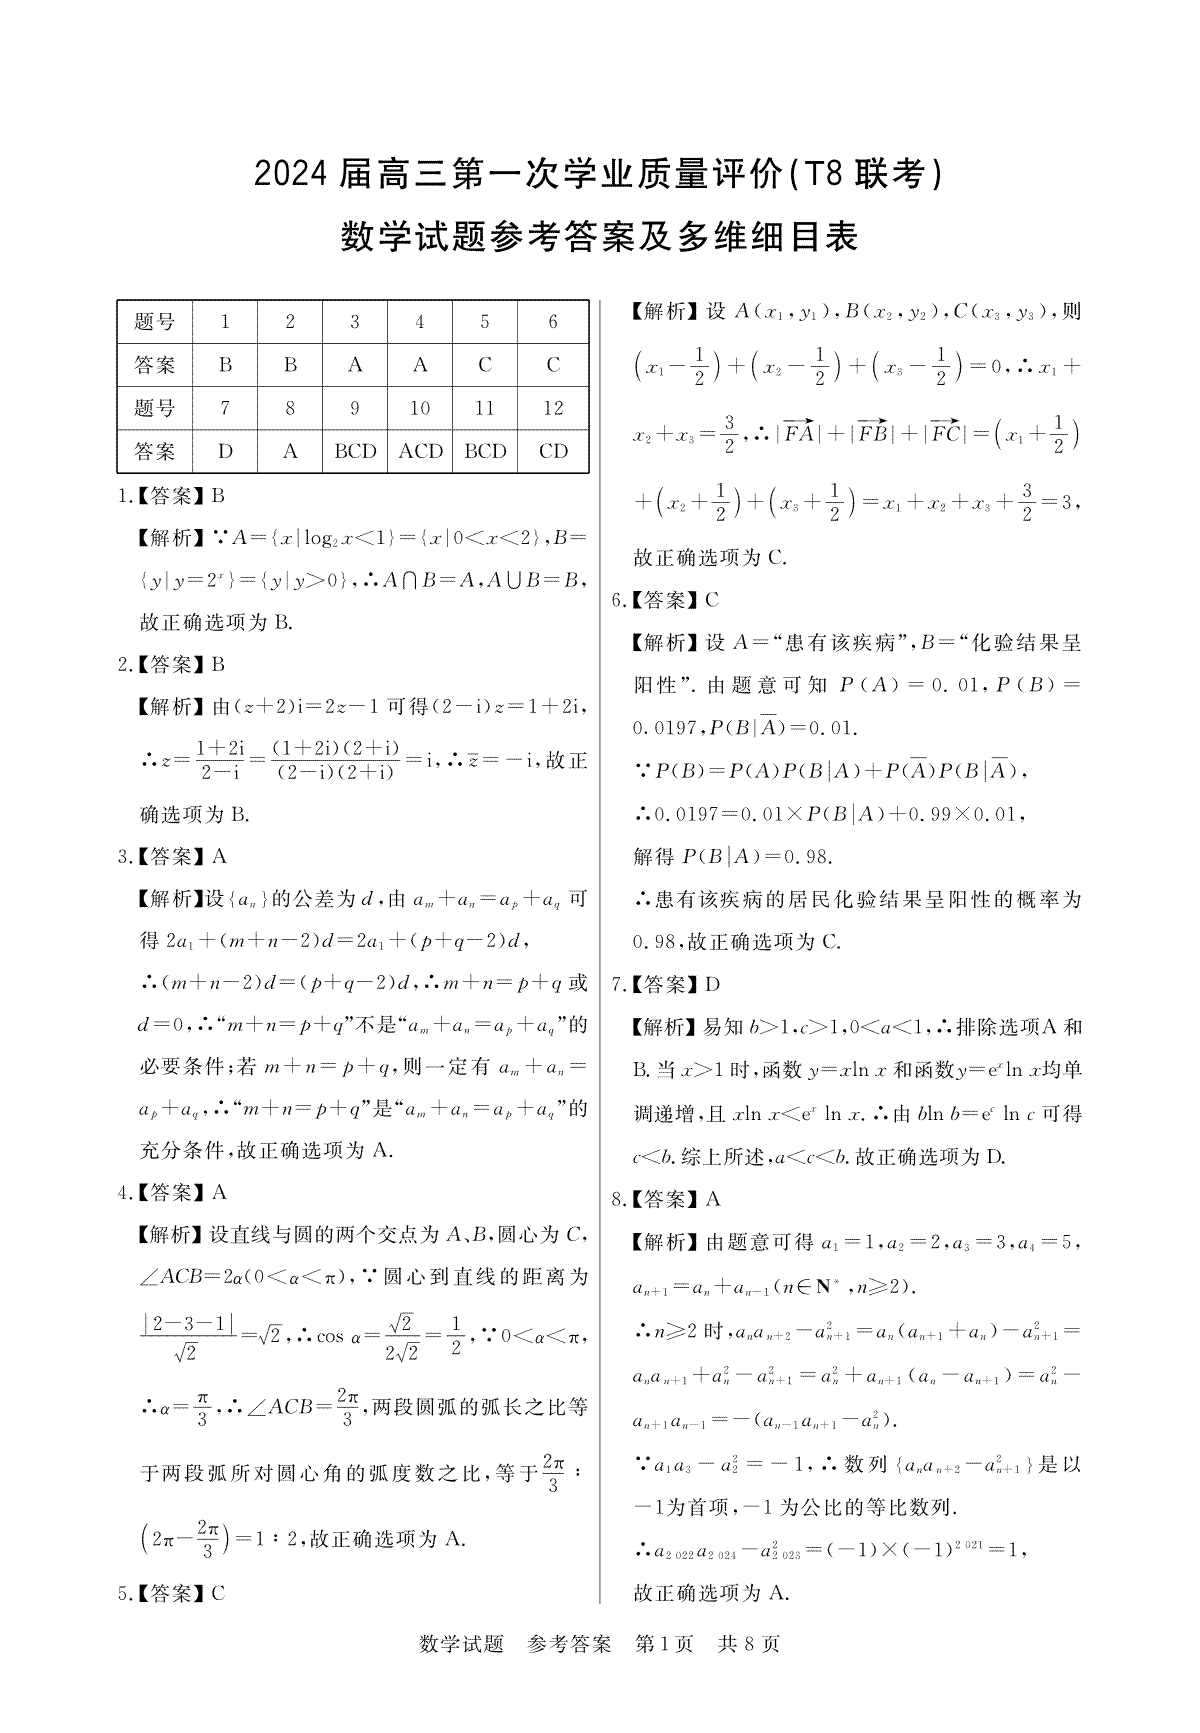 2024 届高三第一次学业质量评价(T8 联考)
数学试题参考答案及多维细目表
题号 1 2 3 4 5 6
答案 B B A A C C
题号 7 8 9 10 11 12
答案 D A BCD ACD BCD CD
1.【答案】B
【解析】∵A={x|log₂x<1}={x|0<x<2},B=
{y|y=2ˣ}={y|y>0},∴A∩B=A,A∪B=B,
故正确选项为 B.
2.【答案】B
【解析】由(z+2)i=2z-1 可得(2-i)z=1+2i,
∴z=(1+2i)/(2-i)=((1+2i)(2+i))/((2-i)(2+i))=i,∴z̄=-i,故正
确选项为 B.
3.【答案】A
【解析】设{aₙ}的公差为 d,由 aₘ+aₙ=aₚ+a_q 可
得 2a₁+(m+n-2)d=2a₁+(p+q-2)d,
∴(m+n-2)d=(p+q-2)d,∴m+n=p+q 或
d=0,∴“m+n=p+q”不是“aₘ+aₙ=aₚ+a_q”的
必要条件;若 m+n=p+q,则一定有 aₘ+aₙ=
aₚ+a_q,∴“m+n=p+q”是“aₘ+aₙ=aₚ+a_q”的
充分条件,故正确选项为 A.
4.【答案】A
【解析】设直线与圆的两个交点为 A、B,圆心为 C,
∠ACB=2α(0<α<π),∵圆心到直线的距离为
|2-3-1|/√2=√2,∴cos α=√2/(2√2)=1/2,∵0<α<π,
∴α=π/3,∴∠ACB=2π/3,两段圆弧的弧长之比等
于两段弧所对圆心角的弧度数之比,等于2π/3:
(2π-2π/3)=1:2,故正确选项为 A.
5.【答案】C
【解析】设 A(x₁,y₁),B(x₂,y₂),C(x₃,y₃),则
(x₁-1/2)+(x₂-1/2)+(x₃-1/2)=0,∴x₁+
x₂+x₃=3/2,∴|FA→|+|FB→|+|FC→|=(x₁+1/2)
+(x₂+1/2)+(x₃+1/2)=x₁+x₂+x₃+3/2=3,
故正确选项为 C.
6.【答案】C
【解析】设 A=“患有该疾病”,B=“化验结果呈
阳性”. 由题意可知 P(A)=0.01,P(B)=
0.0197,P(B|A̅)=0.01.
∵P(B)=P(A)P(B|A)+P(A̅)P(B|A̅),
∴0.0197=0.01×P(B|A)+0.99×0.01,
解得 P(B|A)=0.98.
∴患有该疾病的居民化验结果呈阳性的概率为
0.98,故正确选项为 C.
7.【答案】D
【解析】易知 b>1,c>1,0<a<1,∴排除选项A 和
B. 当 x>1 时,函数 y=xln x 和函数y=eˣln x均单
调递增,且 xln x<eˣ ln x. ∴由 bln b=eᶜ ln c 可得
c<b. 综上所述,a<c<b. 故正确选项为 D.
8.【答案】A
【解析】由题意可得 a₁=1,a₂=2,a₃=3,a₄=5,
aₙ₊₁=aₙ+aₙ₋₁(n∈N*,n≥2).
∴n≥2 时,aₙaₙ₊₂-a²ₙ₊₁=aₙ(aₙ₊₁+aₙ)-a²ₙ₊₁=
aₙaₙ₊₁+a²ₙ-a²ₙ₊₁=a²ₙ+aₙ₊₁(aₙ-aₙ₊₁)=a²ₙ-
aₙ₊₁aₙ₋₁=-(aₙ₋₁aₙ₊₁-a²ₙ).
∵a₁a₃-a²₂=-1,∴数列{aₙaₙ₊₂-a²ₙ₊₁}是以
-1为首项,-1 为公比的等比数列.
∴a₂ ₀₂₂a₂ ₀₂₄-a²₂ ₀₂₃=(-1)×(-1)² ⁰²¹=1,
故正确选项为 A.
数学试题 参考答案 第 1 页 共 8 页